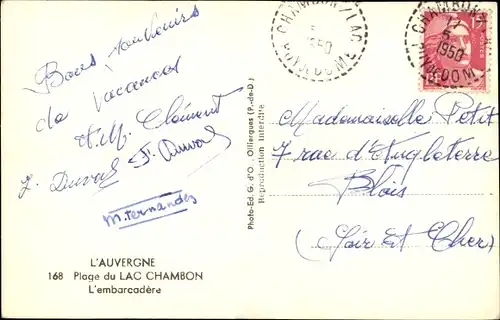 Bons souvenirs
de vacances
et M. Clément
J. Duval F. Duval
M. Fernandes
L'AUVERGNE
168 Plage du LAC CHAMBON
L'embarcadère
Photo-Ed. G. d'O. Olliergues (P.-de-D.)
Reproduction Interdite
CHAMBON/LAC
1950
PUY DE DOME
CHAMBON
5
1950
PUY DE DOME
Mademoiselle Petit
7 rue d'Angleterre
Blois
(Loir et Cher)